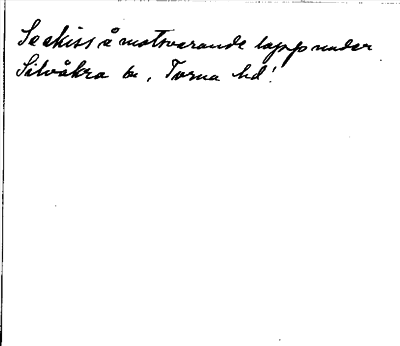 Se skiss å motsvarande lapp under
Silvåkra sn, Torna hd!